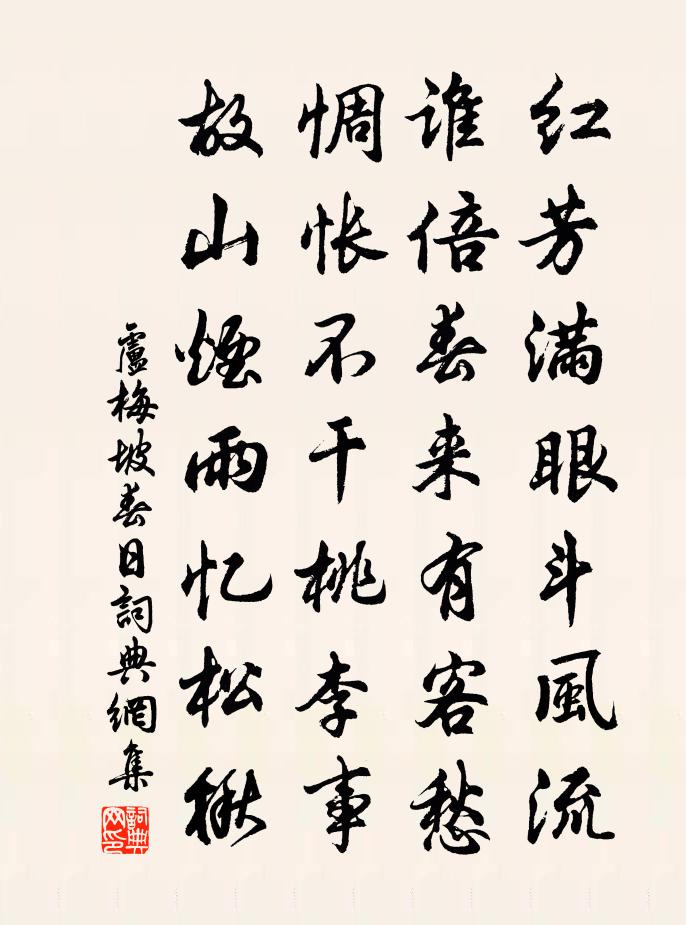 红芳满眼斗風流
谁倍春来有客愁
惆怅不干桃李事
故山煙雨忆松楸
盧梅坡春日詞典網集
詞典网印